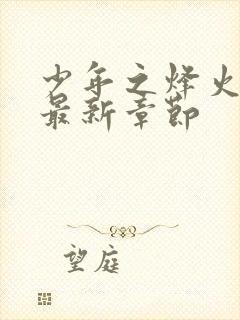 少年之烽火
最新章节
望庭